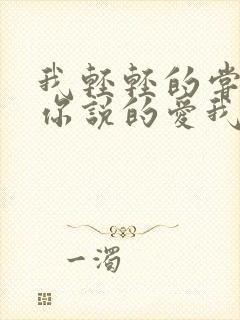 我輕輕的嘗
你說的愛我
一濁